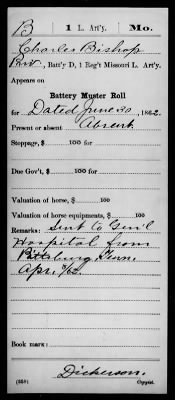 B | 1 L. Art'y. | Mo.
Charles Bishop
Pvt., Batt'y D, 1 Reg't Missouri L. Art'y.
Appears on
Battery Muster Roll
for Dated June 30, 1862.
Present or absent Absent
Stoppage, $ 100 for
Due Gov't, $ 100 for
Valuation of horse, $ 100
Valuation of horse equipments, $ 100
Remarks: Sent to Gen'l
Hospital from
Pittsburg Tenn.
Apr. /62.
Book mark:
Dickerson.
(358) Copyist.